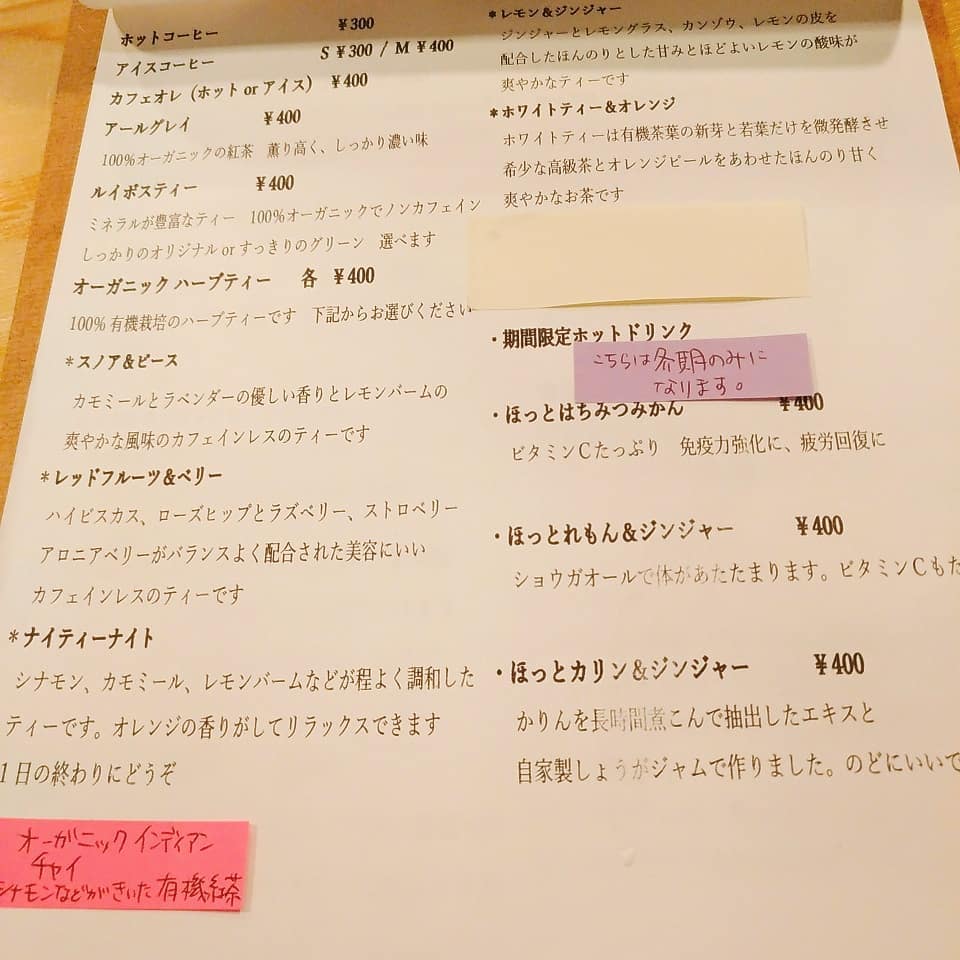 ホットコーヒー ¥300
アイスコーヒー S ¥300 / M ¥400
カフェオレ (ホット or アイス) ¥400
アールグレイ ¥400
100%オーガニックの紅茶 薫り高く、しっかり濃い味
ルイボスティー ¥400
ミネラルが豊富なティー 100%オーガニックでノンカフェイン
しっかりのオリジナル or すっきりのグリーン 選べます
オーガニック ハーブティー 各 ¥400
100% 有機栽培のハーブティーです 下記からお選びください
*スノア&ピース
カモミールとラベンダーの優しい香りとレモンバームの
爽やかな風味のカフェインレスのティーです
*レッドフルーツ&ベリー
ハイビスカス、ローズヒップとラズベリー、ストロベリー
アロニアベリーがバランスよく配合された美容にいい
カフェインレスのティーです
*ナイティーナイト
シナモン、カモミール、レモンバームなどが程よく調和した
ティーです。オレンジの香りがしてリラックスできます
1日の終わりにどうぞ
オーガニック インディアン
チャイ
シナモンなどがきいた 有機紅茶
*レモン&ジンジャー
ジンジャーとレモングラス、カンゾウ、レモンの皮を
配合したほんのりとした甘みとほどよいレモンの酸味が
爽やかなティーです
*ホワイトティー&オレンジ
ホワイトティーは有機茶葉の新芽と若葉だけを微発酵させ
希少な高級茶とオレンジピールをあわせたほんのり甘く
爽やかなお茶です
・期間限定ホットドリンク
こちらは冬期のみに
なります。
・ほっとはちみつみかん ¥400
ビタミンCたっぷり 免疫力強化に、疲労回復に
・ほっとれもん&ジンジャー ¥400
ショウガオールで体があたたまります。ビタミンCもた
・ほっとカリン&ジンジャー ¥400
かりんを長時間煮こんで抽出したエキスと
自家製しょうがジャムで作りました。のどにいいで